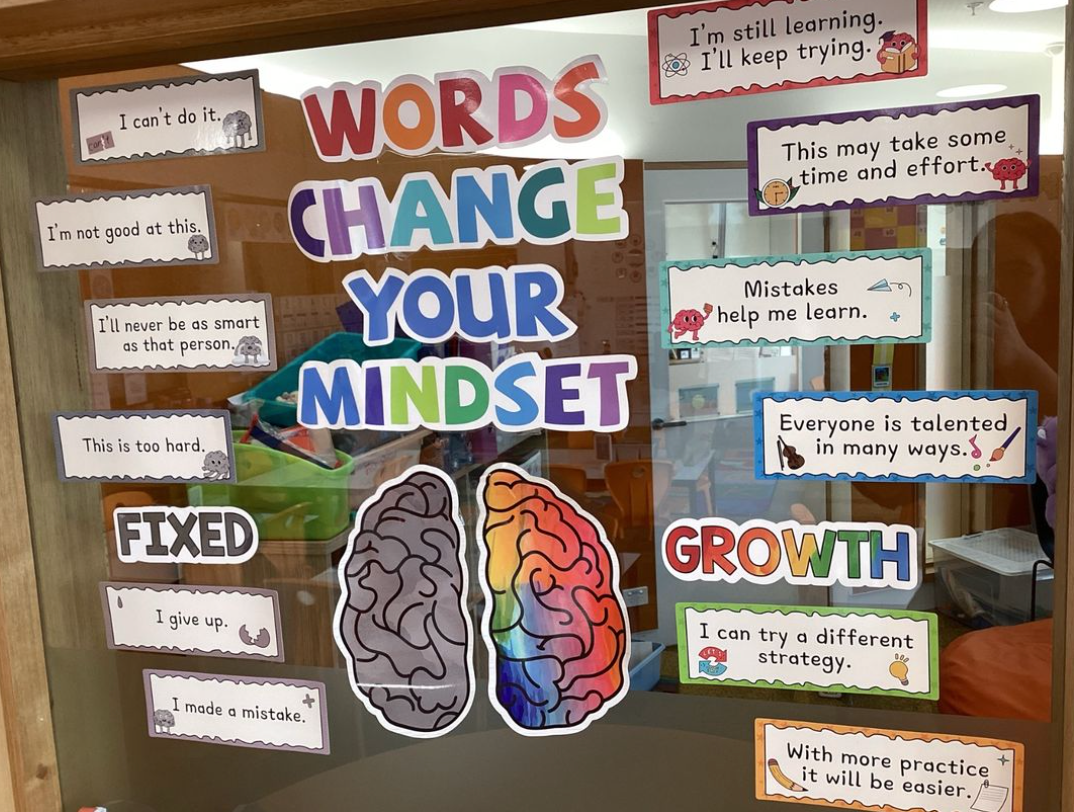 WORDS
CHANGE
YOUR
MINDSET
I can't do it.
can't
I'm not good at this.
I'll never be as smart
as that person.
This is too hard.
FIXED
I give up.
I made a mistake.
I'm still learning.
I'll keep trying.
This may take some
time and effort.
Mistakes
help me learn.
Everyone is talented
in many ways.
GROWTH
I can try a different
strategy.
With more practice
it will be easier.